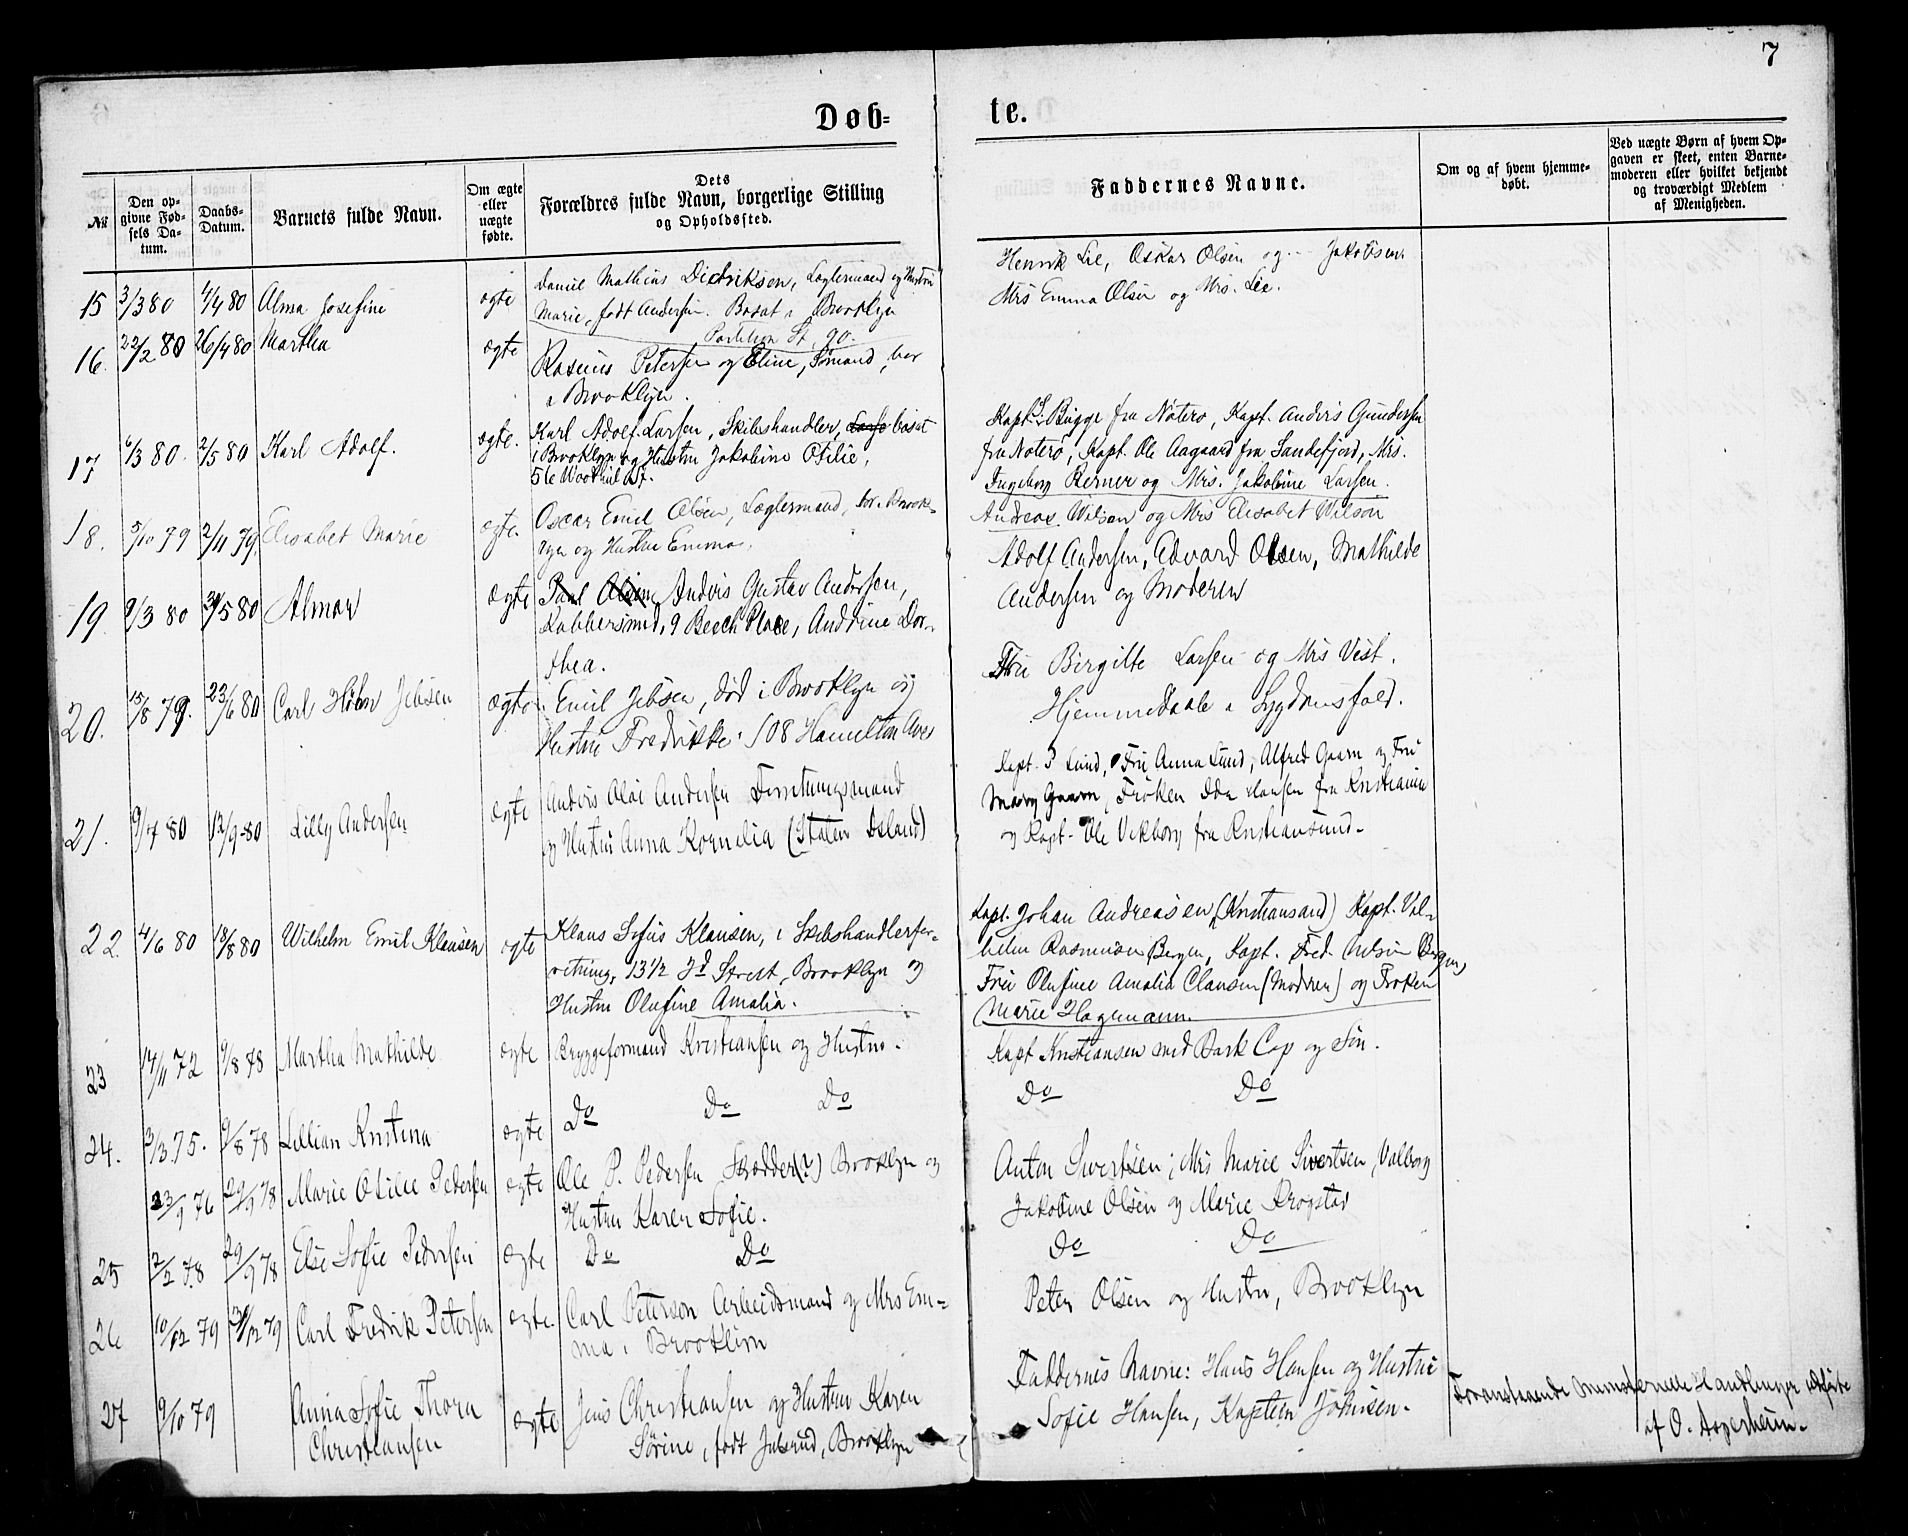 7
Døb-
te.
№
Den op-
givne Fød-
sels Da-
tum.
Daabs-
Datum.
Barnets fulde Navn.
Om ægte
eller
uægte
fødte.
Dets
Forældres fulde Navn, borgerlige Stilling
og Opholdssted.
Faddernes Navne.
Om og af hvem hjemme-
døbt.
Ved uægte Børn af hvem Op-
gaven er skeet, enten Barne-
moderen eller hvilket bekjendt
og troværdigt Medlem
af Menigheden.
15 3/3 80 4/4 80 Alma Josefine ægte
Daniel Mathius Didriksen, Lægtermand og Hustru
Marie, født Andersen. Bosat i Brooklyn
Partition St. 90.
Henrik Lie, Oskar Olsen og --- Jakobsen
Mrs Emma Olsen og Mrs. Lie.
16. 22/2 80 26/4 80 Martha ægte
Rasmus Petersen og Eline, Sømand, bor
i Brooklyn.
17 6/3 80. 2/5 80 Karl Adolf. ægte.
Karl Adolf Larsen, Skibshandler, bosat
i Brooklyn og Hustru Jakobine Otilie,
Kapt. Bugge fra Nøterø, Kapt. Anders Gundersen
fra Nøterø, Kapt. Ole Aagaard fra Sandefjord, Mrs.
Ingeborg Rerner og Mrs. Jakobine Larsen.
18. 5/10 79 2/11 79. Elisabet Marie ægte.
Oscar Emil Olsen, Lægtermand, bor i Brook-
lyn og Hustru Emma.
Andreas Wilson og Mrs Elisabet Wilson
19. 9/3 80 30/5 80 Almar ægte
Paul Olsen Anders Gustav Andersen,
Kobbersmed, 9 Beech Place, Andrine Dor-
thea.
Adolf Andersen, Edvard Olsen, Mathilde
Andersen og Moderen
20. 15/8 79. 23/6 80 Carl Holm Jebsen ægte.
Emil Jebsen, død i Brooklyn og
Hustru Fredrikke. 108 Hamilton Ave
Fru Birgitte Larsen og Mrs Vest.
Hjemmedaab i Sygdomsfald.
21. 9/7 80 12/9-80 Lilly Andersen ægte
Anders Olai Andersen Forretningsmand
og Hustru Anna Kornelia (Staten Island)
Kapt. P Lund, Fru Anna Lund, Alfred Gaarn og Fru
Mary Gaarn, Frøken Ida Hansen fra Kristiania
og Kapt. Ole Vikborg fra Kristiansund.
22. 4/6 80 18/8 80 Wilhelm Emil Klausen ægte
Klaus Sofus Klausen, i Skibshandlerfor-
retning, 13 1/2 3d Street, Brooklyn og
Hustru Olufine Amalia.
Kapt. Johan Andreasen (Kristiansand) Kapt. Vil-
helm Rasmussen Bergen, Kapt. Fred. Nilsen Bergen,
Fru Olufine Amalia Clausen (Modren) og Frøken
Marie Hagemann.
23 14/11 72 9/8 78 Martha Mathilde ægte
Bryggeformand Kristiansen og Hustru.
Kapt Kristiansen med Bark Cap og Søn.
24. 3/3 75. 9/8 78 Lillian Kristina ægte
Do Do Do
Do Do
23/9 76 29/9 78 Marie Otilie Pedersen ægte
Ole P. Pedersen Skrædder(?) Brooklyn og
Hustru Karen Sofie.
Anton Sivertsen; Mrs Marie Sivertsen, Valborg
Jakobine Olsen og Marie Krogstad
25 2/2 78 29/9 78 Else Sofie Pedersen ægte
Do Do
Do Do
26 10/12 79 30/12 79 Carl Fredrik Petersen ægte.
Carl Peterson Arbeidsmand og Mrs Em-
ma i Brooklyn
Peter Olsen og Hustru, Brooklyn
27 9/10 79 Anna Sofie Thora
Christiansen ægte
Jens Christiansen og Hustru Karen
Sørine, født Julsrud, Brooklyn
Faddernes Navne: Hans Hansen og Hustru
Sofie Hansen, Kaptein Johnsen.
Foranstaaende ministerielle Handlinger udførte
af O. Asperheim.